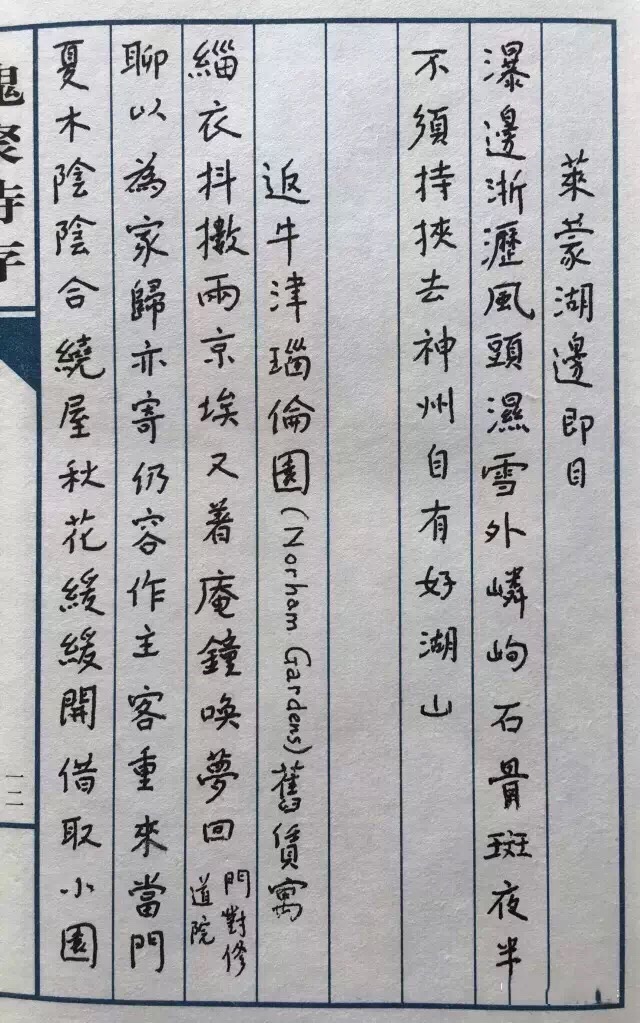 萊蒙湖邊即目
瀑邊淅瀝風頭濕雪外嶙峋石骨斑夜半
不須持挾去神州自有好湖山
返牛津瑙倫園(Norham Gardens)舊賃寓
緇衣抖擻兩京埃又着庵鐘喚夢回門對修道院
聊以為家歸亦寄仍容作主客重來當門
夏木陰陰合繞屋秋花緩緩開借取小園
槐聚詩存
一二